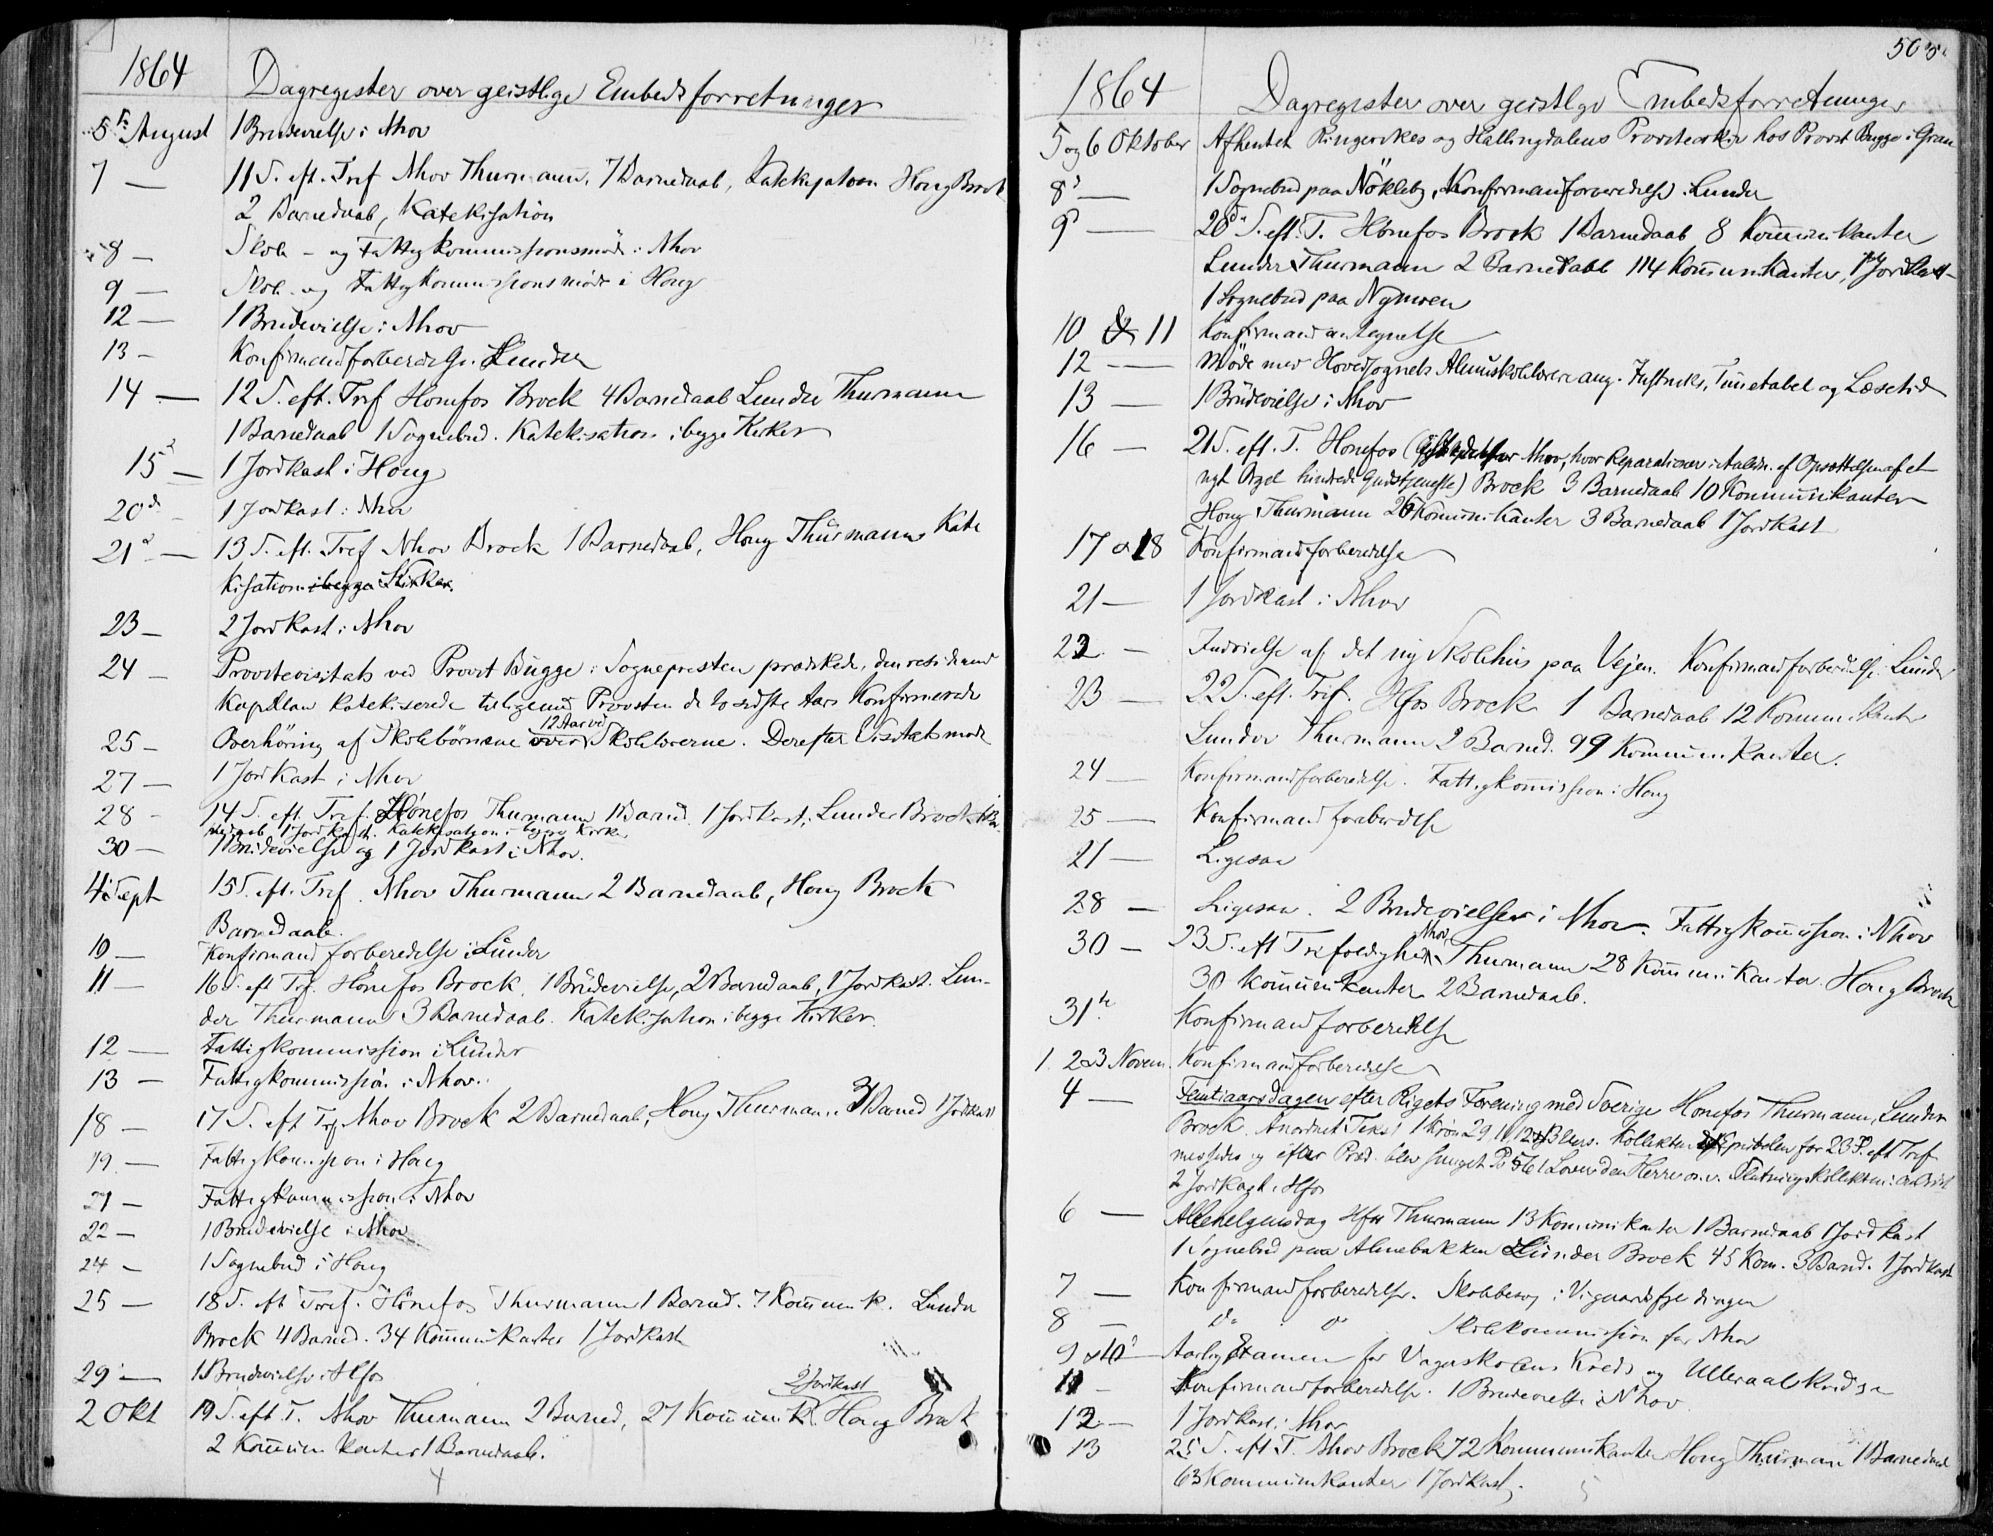 1864
Dagregister over geistlige Embedsforretninger
5te August 1 Brudevielse i Nhov
7 — 11 S. eft. Tref Nhov Thurmann, 7 Barnedaab, Katekisation Houg Brock
2 Barnedaab, Katekisation
8 — Skole - og Fattigkommissionsmöde i Nhov
9 — Skole og Fattigkommissionsmöde i Houg
12 — 1 Brudevielse i Nhov
13 — Konfirmandforberedelse i Lunder
14 — 12 S. eft. Tref Hönefos Brock 4 Barnedaab Lunder Thurmann
1 Barnedaab 1 Sognebud. Katekisation i begge Kirker
15 — 1 Jordkast i Houg
20de 1 Jordkast i Nhov
21 — 13 S. eft. Tref Nhov Brock 1 Barnedaab, Houg Thurmann Kate
kisation i begge Kirker.
23 — 2 Jordkast i Nhov
24 — Provstevisitats ved Provst Bugge: Sognepresten prædikede, den residerende
Kapellan katekiserede tilligemed Provsten de to sidste Aars Konfirmerede
12 Aar ved
25 — Overhöring af Skolebörnene over Skolelærerne. Derefter Visitatsmöde
27 — 1 Jordkast i Nhov
28 — 14 S. eft. Tref. Hönefos Thurmann 1 Barned. 1 Jordkast, Lunder Brock 1 Bar
nedaab 1 Jordkast. Katekisation i begge Kirker
30 — 1 Brudevielse og 1 Jordkast i Nhov.
4de Sept 15 S. eft. Tref. Nhov Thurmann 2 Barnedaab, Houg Brock
Barnedaab.
10 — Konfirmandforberedelse i Lunder
11 — 16 S. eft Tref. Hönefos Brock. 1 Brudevielse, 2 Barnedaab, 1 Jordkast. Lun-
der Thurmann 3 Barnedaab. Katekisation i begge Kirker.
12 — Fattigkommission i Lunder
13 — Fattigkommission i Nhov.
18 — 17 S. eft Tref Nhov Brock 2 Barnedaab, Houg Thurmann 3 Barned 1 Jordkast
19 — Fattigkommission i Houg
21 — Fattigkommission i Nhov
22 — 1 Brudevielse i Nhov
24 — 1 Sognebud i Houg
25 — 18 S. eft Tref. Hönefos Thurmann 1 Barned. 7 Kommunik. Lunder
Brock 4 Barned. 34 Kommunikanter 1 Jordkast
29 — 1 Brudevielse i Hfos
2 Jordkast
2 Okt 19 S. eft T. Nhov Thurmann 2 Barned, 27 Kommunik. Houg Brock
2 Kommunikanter 1 Barnedaab.
505
1864
Dagregister over geistlige Embedsforretninger
5 og 6 Oktober Afhentet Ringerikes og Hallingdalens Provstearkiv hos Provst Bugge i Gran
8de — 1 Sognebud paa Nökleby, Konfirmandforberedelse i Lunder
9 — 20de S. eft. T. Hönefos Brock 1 Barnedaab 8 Kommunikanter
Lunder Thurmann 2 Barnedaab 114 Kommunikanter, 1 Jordkast
1 Sognebud paa Nymoen
10 & 11 Konfirmandantegnelse
12 — Möde med Hovedsognets Almueskolelærere ang. Instruks, Timetabel og Læsetid
13 — 1 Brudevielse i Nhov
16 — 21 S. eft. T. Hönefos ( Nhov, hvor Reparationer i Anledn. af Opsættelsen af et
nyt Orgel hindrede Gudstjeneste) Brock 3 Barnedaab 10 Kommunikanter
Houg Thurmann 26 Kommunikanter 3 Barnedaab 1 Jordkast
17 & 18 Konfirmandforberedelse
21 — 1 Jordkast i Nhov
22 — Indvielse af det ny Skolehus paa Vejen. Konfirmandforberedelse i Lunder
23 — 22 S. eft. Tref. Hfos Brock 1 Barnedaab 12 Kommunikanter
Lunder Thurmann 2 Barned. 99 Kommunikanter.
24 — Konfirmandforberedelse. Fattigkommission i Houg
25 — Konfirmandforberedelse
21 — Ligesaa
28 — Ligesaa. 2 Brudevielser i Nhov. Fattigkommission i Nhov
30 — 23 S. eft Trefoldighed Nhov Thurmann 28 Kommunikanter Houg Brock
30 Kommunikanter 2 Barnedaab.
31te Konfirmandforberedelse
1. 2 & 3 Novem. Konfirmandforberedelse
4 — Femtiaarsdagen efter Rigets Forening med Sverige Hönefos Thurmann, Lunder
Brock. Anordnet Text 1 Krön 29 11, 12 & 13 Vers. Kollekten & Epistelen for 23 S. eft Tref
messedes og efter Præd. blev sunget No 561 Lover den Herre o.s.v. Slutningskollekten:
2 Jordkast i Hfos
6 — Allehelgensdag Hfos Thurmann 13 Kommunikanter 1 Barnedaab 1 Jordkast
1 Sognebud paa Almebakken Lunder Brock 45 Kom. 3 Barned. 1 Jordkast
7 — Konfirmandforberedelse. Skolebesög i Vigaardsfjerdingen
8 — do do Skolekommission for Nhov
9 & 10 — Aarlig Examen for Vagaskolens Kreds og Ulleraal Kreds
11 — Konfirmandforberedelse. 1 Brudevielse i Nhov
12 — 1 Jordkast i Nhov
13 25 S. eft T. Nhov Brock 72 Kommunikanter Houg Thurmann 1 Barnedaab
63 Kommunikanter 1 Jordkast.